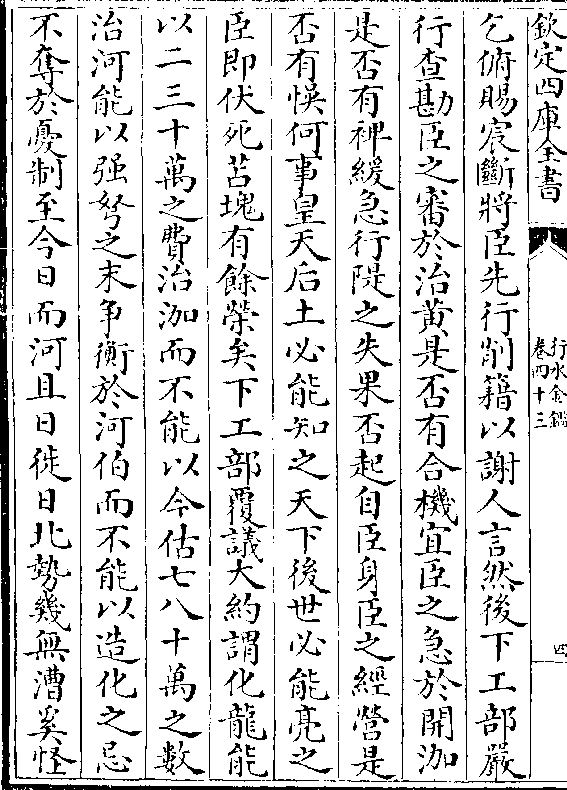 欽定四庫全書
行水金鑑
卷四十三
四
乞俯賜宸斷將臣先行削籍以謝人言然後下工部嚴
行查勘臣之審於治黄是否有合機宜臣之急於開泇
是否有裨緩急行隄之失果否起自臣身臣之經營是
否有悮何事皇天后土必能知之天下後世必能亮之
臣即伏死苫塊有餘榮矣下工部覆議大約謂化龍能
以二三十萬之費治泇而不能以今估七八十萬之數
治河能以强弩之末争衡於河伯而不能以造化之忌
不奪於憂制至今日而河且日徙日北勢幾無漕奚怪